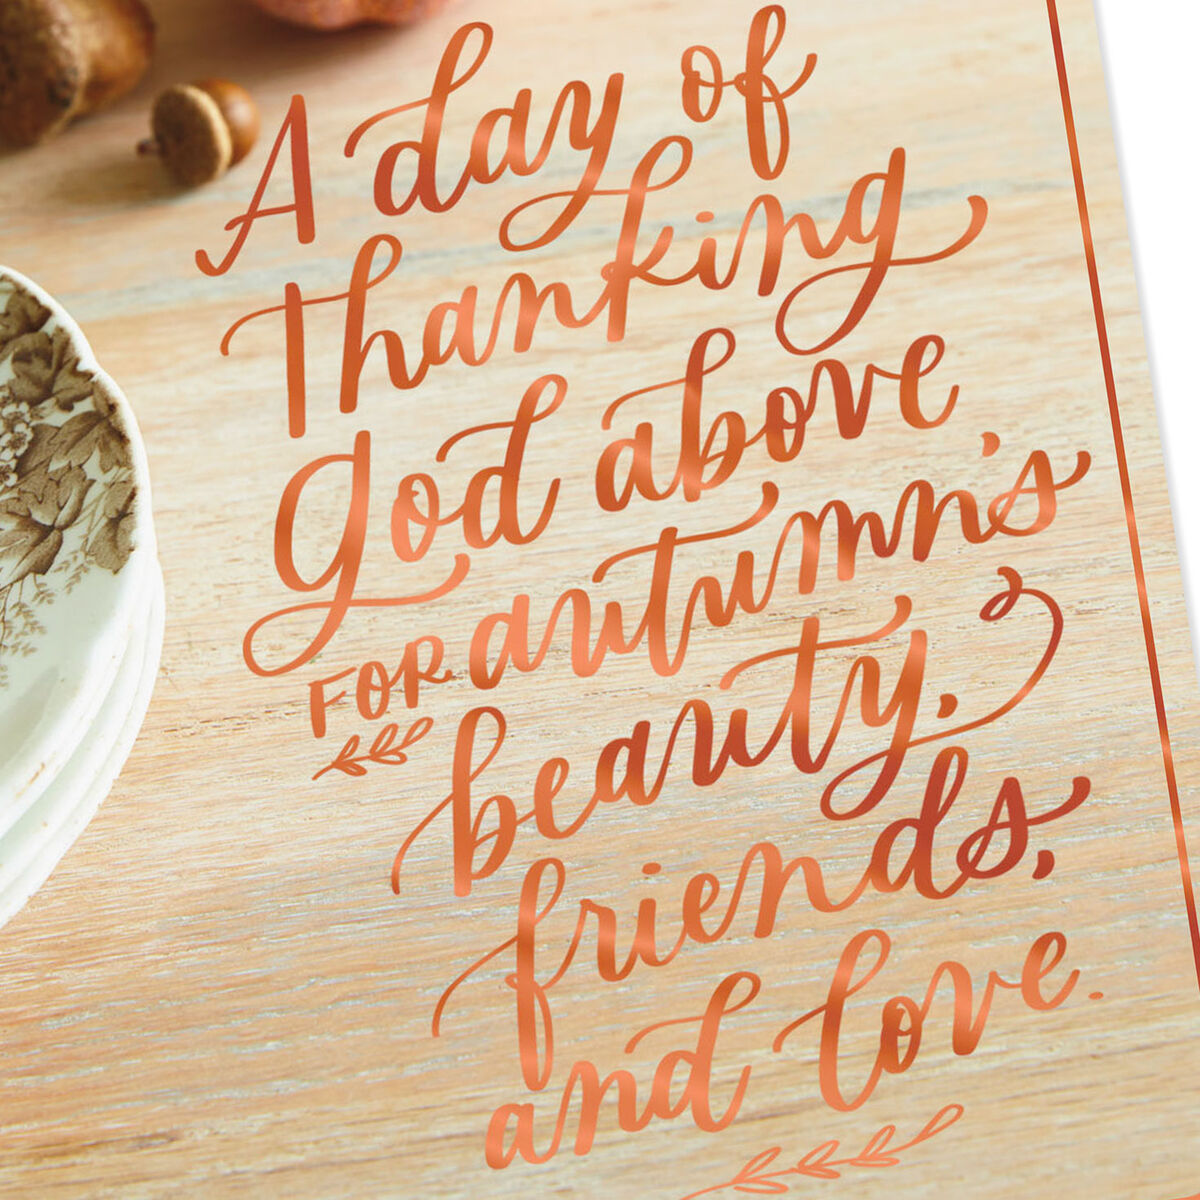 A day of
Thanking
God above
FOR autumn's
beauty,
friends,
and love.